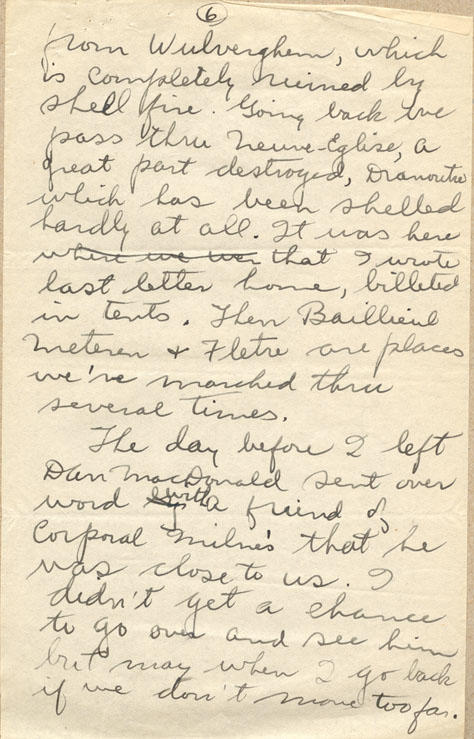 6
from Wulverghem, which
is completely ruined by
shell fire. Going back we
pass thru Neuve-Eglise, a
great part destroyed, Dranoutre
which has been shelled
hardly at all. It was here
where we wer that I wrote
last letter home, billeted
in tents. Then Baillieul
Meteren & Fletre are places
we've marched thru
several times.
The day before I left
Dan MacDonald sent over
word by with a friend of
Corporal Milne's that he
was close to us. I
didn't get a chance
to go over and see him
but may when I go back
if we don't move too far.